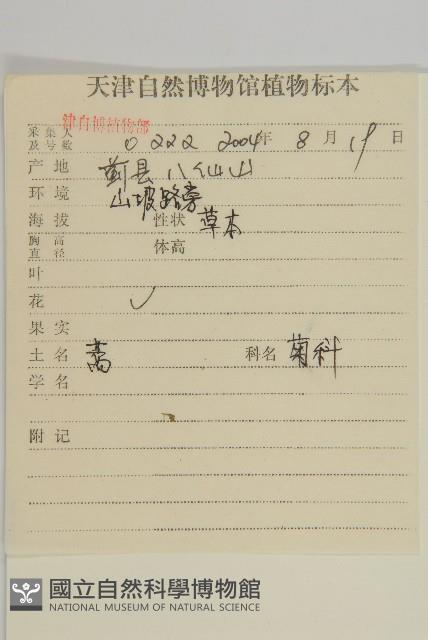 天津自然博物馆植物标本
津自博植物部
采集人及号数 0222 2004年 8月19日
产地 蓟县八仙山
环境 山坡路旁
海拔 性状 草本
胸高直径 体高
叶
花 ✓
果实
土名 蒿 科名 菊科
学名
附记
國立自然科學博物館
NATIONAL MUSEUM OF NATURAL SCIENCE